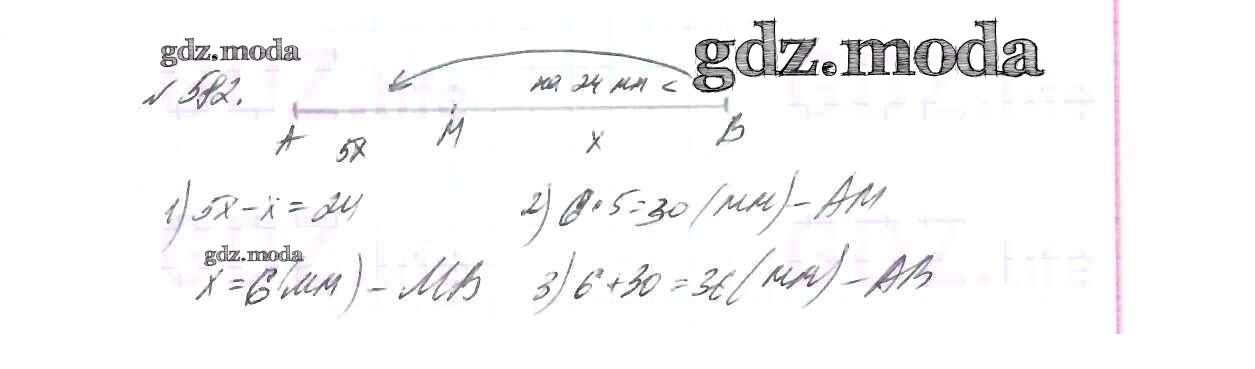 gdz.moda
gdz.moda
№ 592.
на 24 мм <
A 5x M x B
1) 5x - x = 24
2) 6 · 5 = 30 (мм) - AM
gdz.moda
x = 6 (мм) - MB
3) 6 + 30 = 36 (мм) - AB